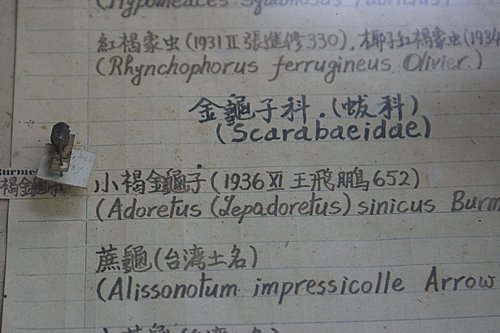 (Hypomeces squamosus Fabricius)
紅褐象虫(1931 II 張進修330),椰子紅褐象虫(1934
(Rhynchophorus ferrugineus Olivier)
金龜子科.(蛂科)
(Scarabaeidae)
小褐金龜子(1936 XI 王飛鵬652)
(Adoretus (Lepadoretus) sinicus Burm
蔗龜(台湾土名)
(Alissonotum impressicolle Arrow